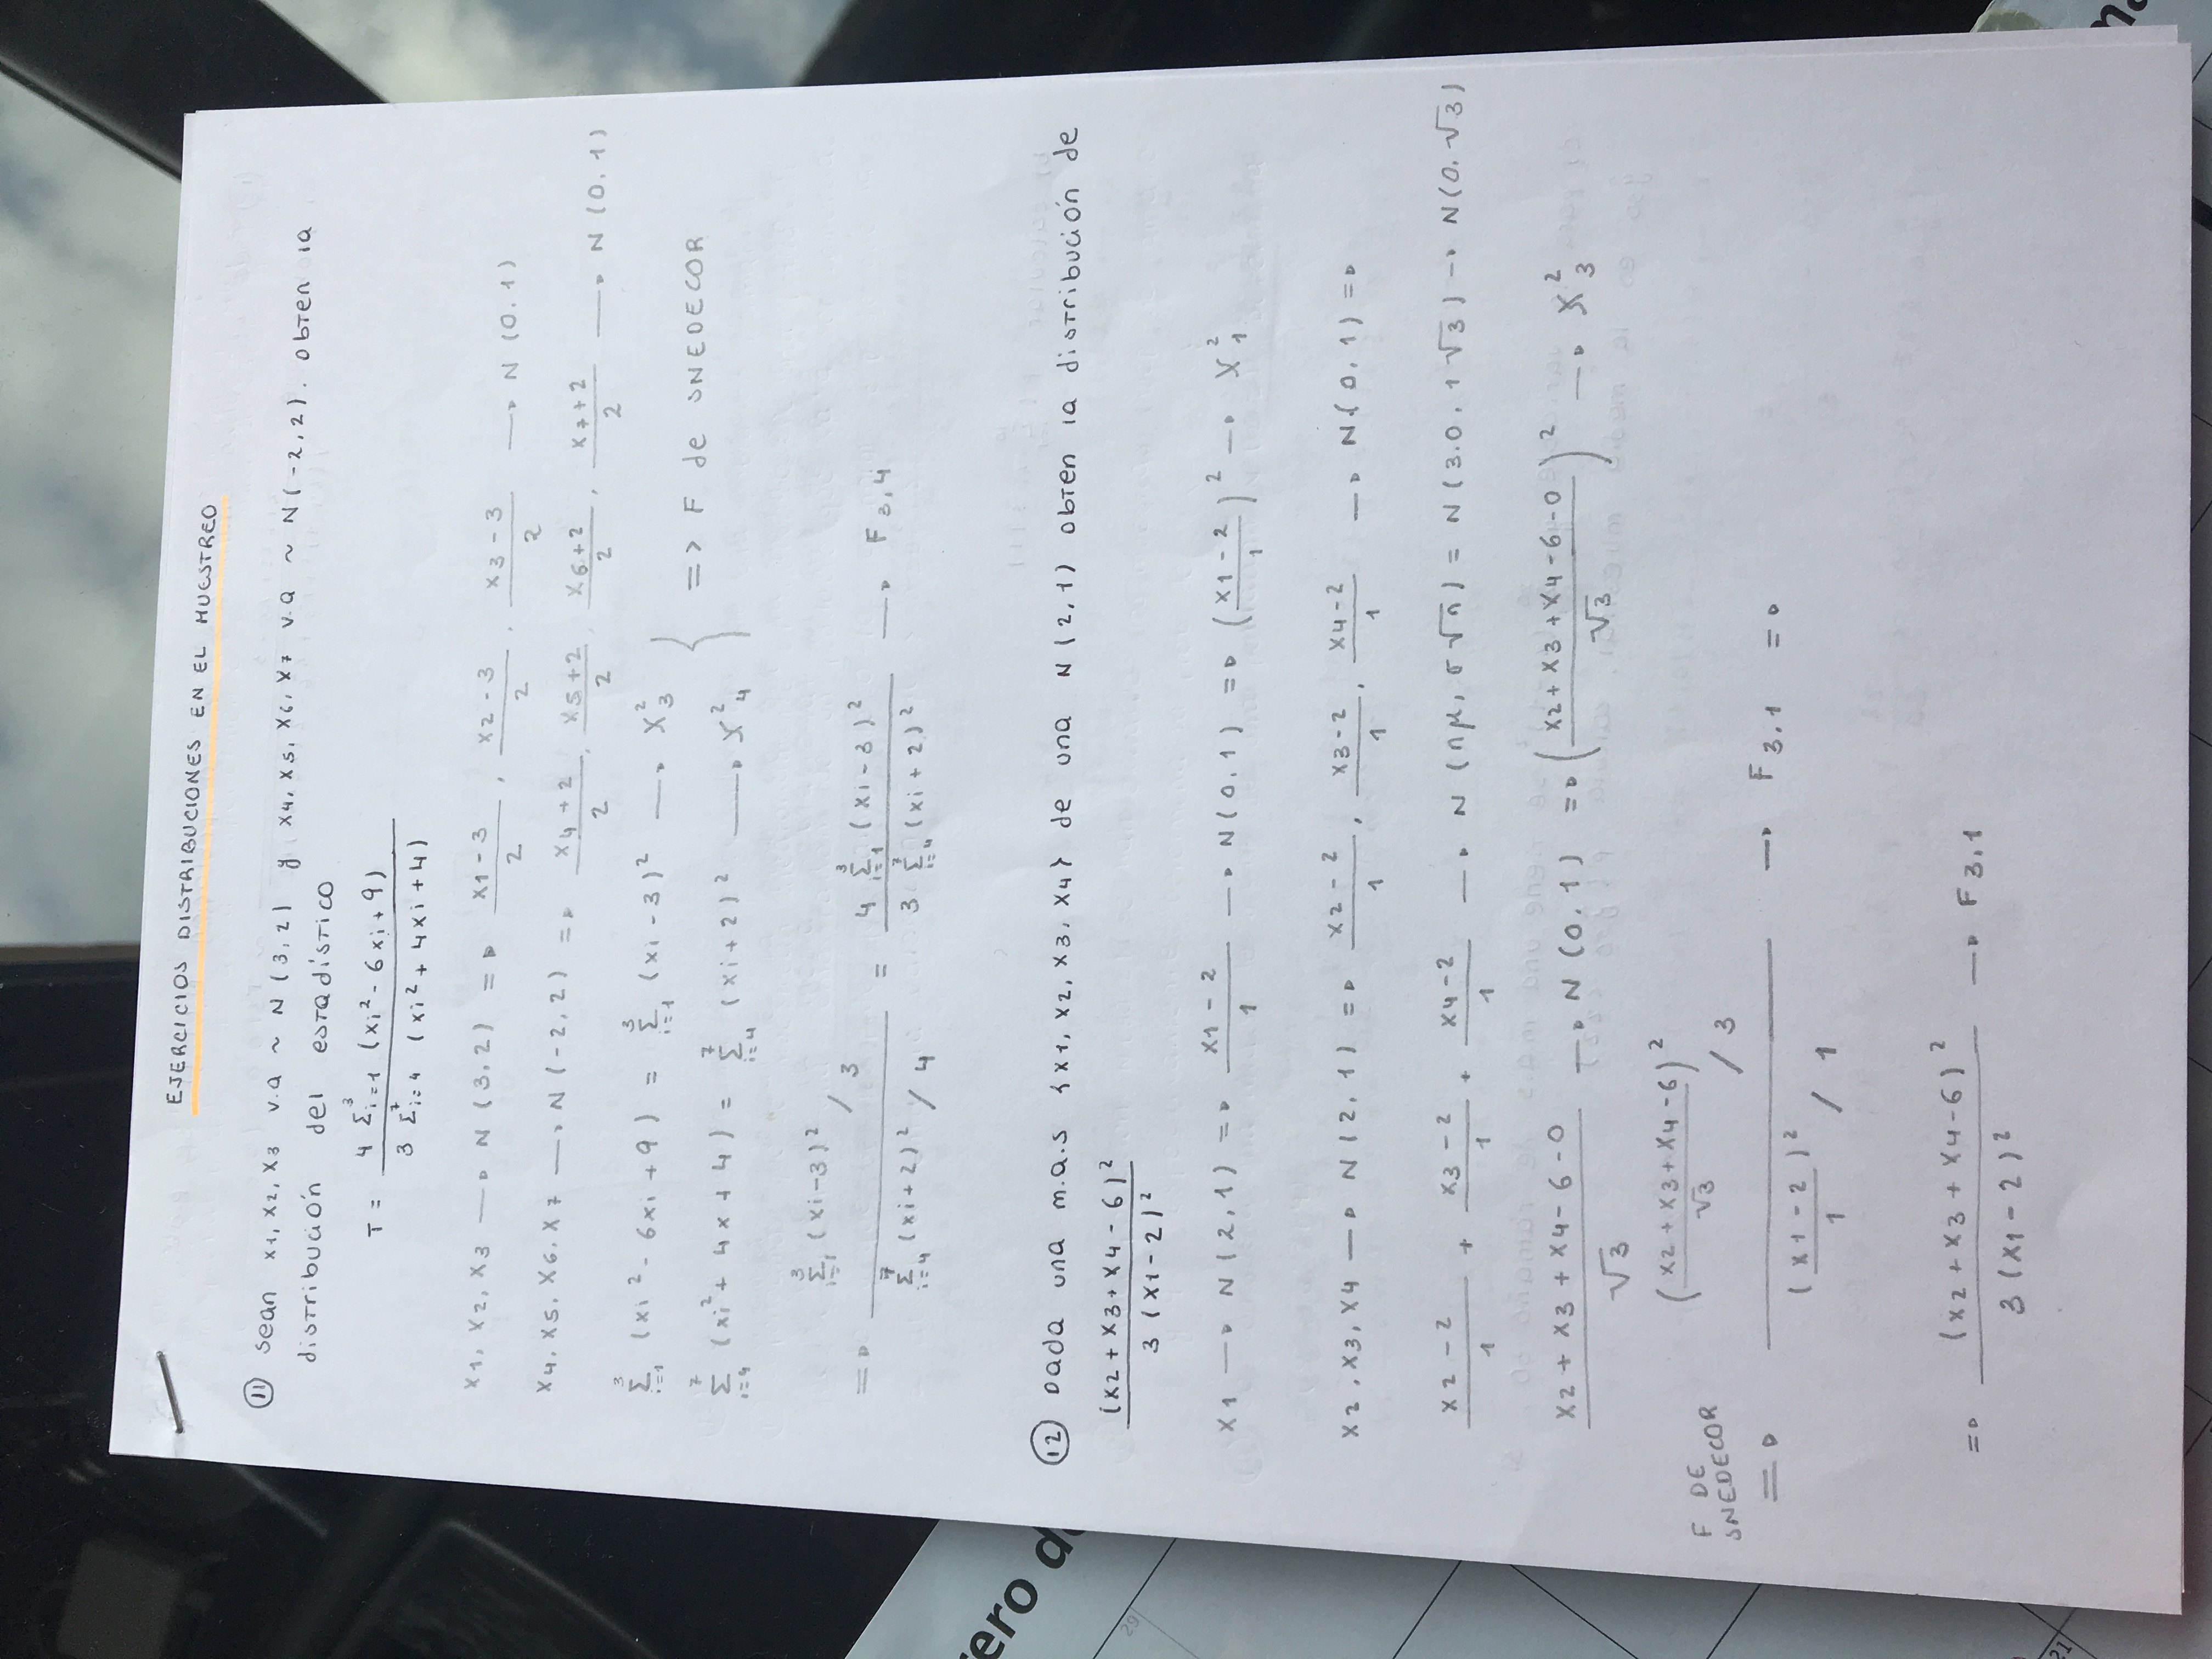 EJERCICIOS DISTRIBUCIONES EN EL MUESTREO
11 Sean x1, x2, x3 v.a ~ N(3,2) y x4, x5, x6, x7 v.a ~ N(-2,2). Obten la
distribución del estadístico
T = 4 Σ³i=1 (xi² - 6xi + 9) / 3 Σ⁷i=4 (xi² + 4xi + 4)
x1, x2, x3 → N(3,2) => (x1-3)/2, (x2-3)/2, (x3-3)/2 → N(0,1)
x4, x5, x6, x7 → N(-2,2) => (x4+2)/2, (x5+2)/2, (x6+2)/2, (x7+2)/2 → N(0,1)
Σ³i=1 (xi² - 6xi + 9) = Σ³i=1 (xi-3)² → X²3
=> F de SNEDECOR
Σ⁷i=4 (xi² + 4x + 4) = Σ⁷i=4 (xi+2)² → X²4
=> (Σ³i=1 (xi-3)² / 3) / (Σ⁷i=4 (xi+2)² / 4) = 4 Σ³i=1 (xi-3)² / 3 Σ⁷i=4 (xi+2)² → F3,4
12 Dada una m.a.s {x1, x2, x3, x4} de una N(2,1) obten la distribución de
(x2 + x3 + x4 - 6)² / 3 (x1-2)²
x1 → N(2,1) => (x1-2)/1 → N(0,1) => ((x1-2)/1)² → X²1
x2, x3, x4 → N(2,1) => (x2-2)/1, (x3-2)/1, (x4-2)/1 → N(0,1) =>
(x2-2)/1 + (x3-2)/1 + (x4-2)/1 → N(nμ, σ√n) = N(3.0, 1√3) → N(0,√3)
(x2 + x3 + x4 - 6 - 0)/√3 → N(0,1) => ((x2 + x3 + x4 - 6 - 0)/√3)² → X²3
F DE
SNEDECOR
=> (((x2 + x3 + x4 - 6)/√3)² / 3) / (((x1-2)/1)² / 1) → F3,1 =>
=> (x2 + x3 + x4 - 6)² / 3 (x1-2)² → F3,1
29
21